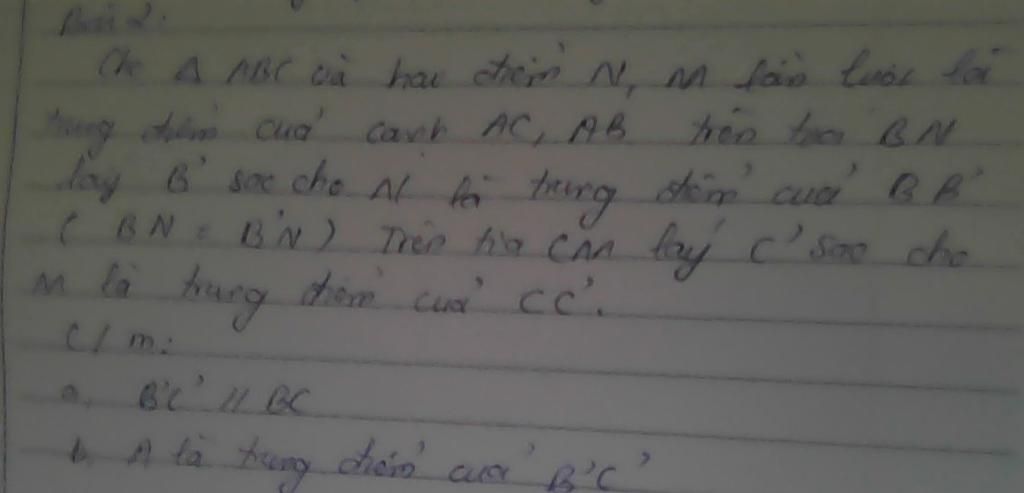 Bài 2:
Cho Δ ABC và hai điểm N, M lần lượt là
trung điểm của cạnh AC, AB trên tia BN
lấy B' sao cho N là trung điểm của BB'
( BN = B'N ) Trên tia CM lấy C' sao cho
M là trung điểm của CC'.
C/m:
a, B'C' // BC
b, A là trung điểm của B'C'